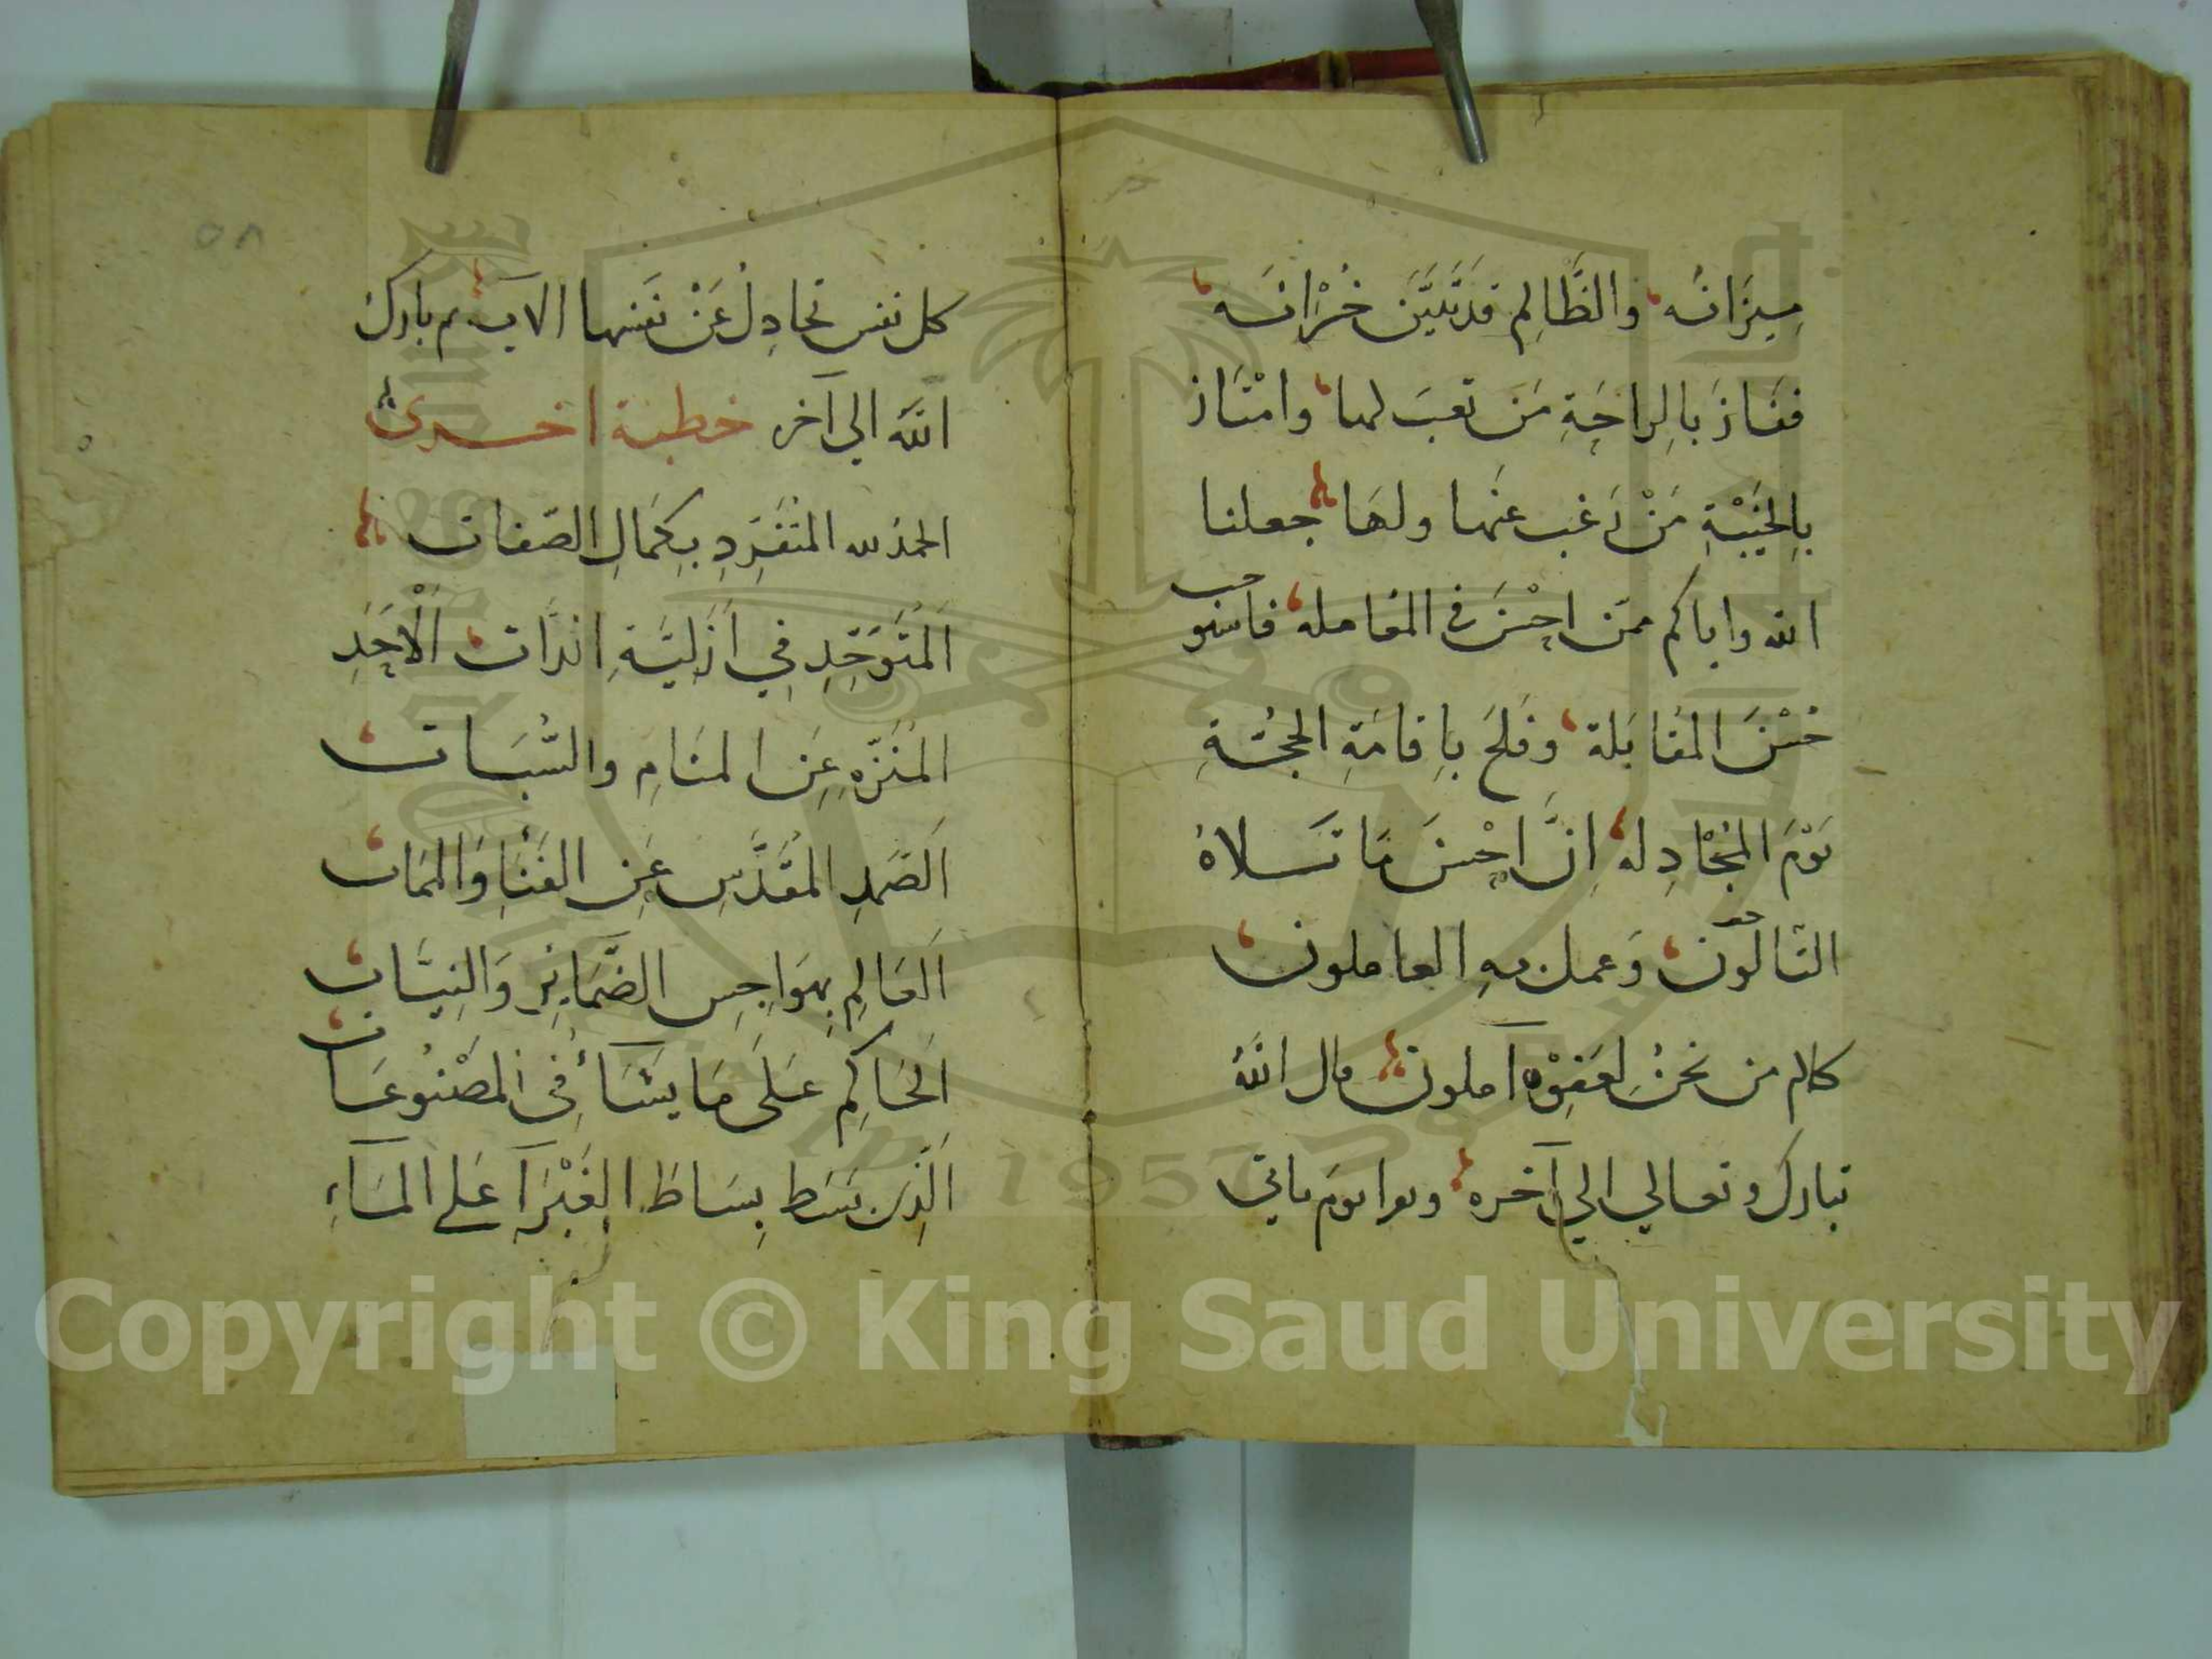 مِيزَانُه، وَالظَّالِم قد تَبَيَّنَ خُسْرَانُه،
ففَازَ بالراحَةِ مَن تعبَ لها، وامْتَازَ
بالخَيْبَةِ مَنْ رَغب عنها ولهَا جعلنا
الله واياكم ممَن احْسَنَ في المُعامله، فاستوجب
حُسْنَ المُقابَلة، وفَلَحَ بإقامَةِ الحجَّةِ
يَوْمَ المُجَادِله، اِنَّ احْسَنَ مَا تَلاهُ
التالُون، وَعمل بهِ العاملون،
كلام من نحنُ لعَفوِه آملون قال اللهُ
تبارك وتعالي الي آخره وهو ايوم ياتي
كل نفس تجادِلُ عَنْ نَفسها الآيه، م بارك
الله الي آخر خطبة اخرى
الحمدُ لله المتفَرِّدِ بِكمَالِ الصّفات
اَلمُتَوَحِّدِ فِي اَزَلِيَّةِ الذَّات، اَلْاَحَدِ
المُنَزَّهِ عَنِ المنَامِ والسُّبَات،
اَلصَّمَدِ المُقَدَّسِ عَنِ الفَنَاءِ وَالممَات،
اَلعَالِمِ بِهوَاجِسِ الضَّمَايِرِ وَالنِيَّات،
اَلحَاكِمِ عَلَى مَا يشَآءُ فِي المَصْنُوعَات،
اَلَّذِي بَسَط بِسَاطَ الغَبْرَآ عَلي المَآءِ
٥٨
Copyright © King Saud University
1957